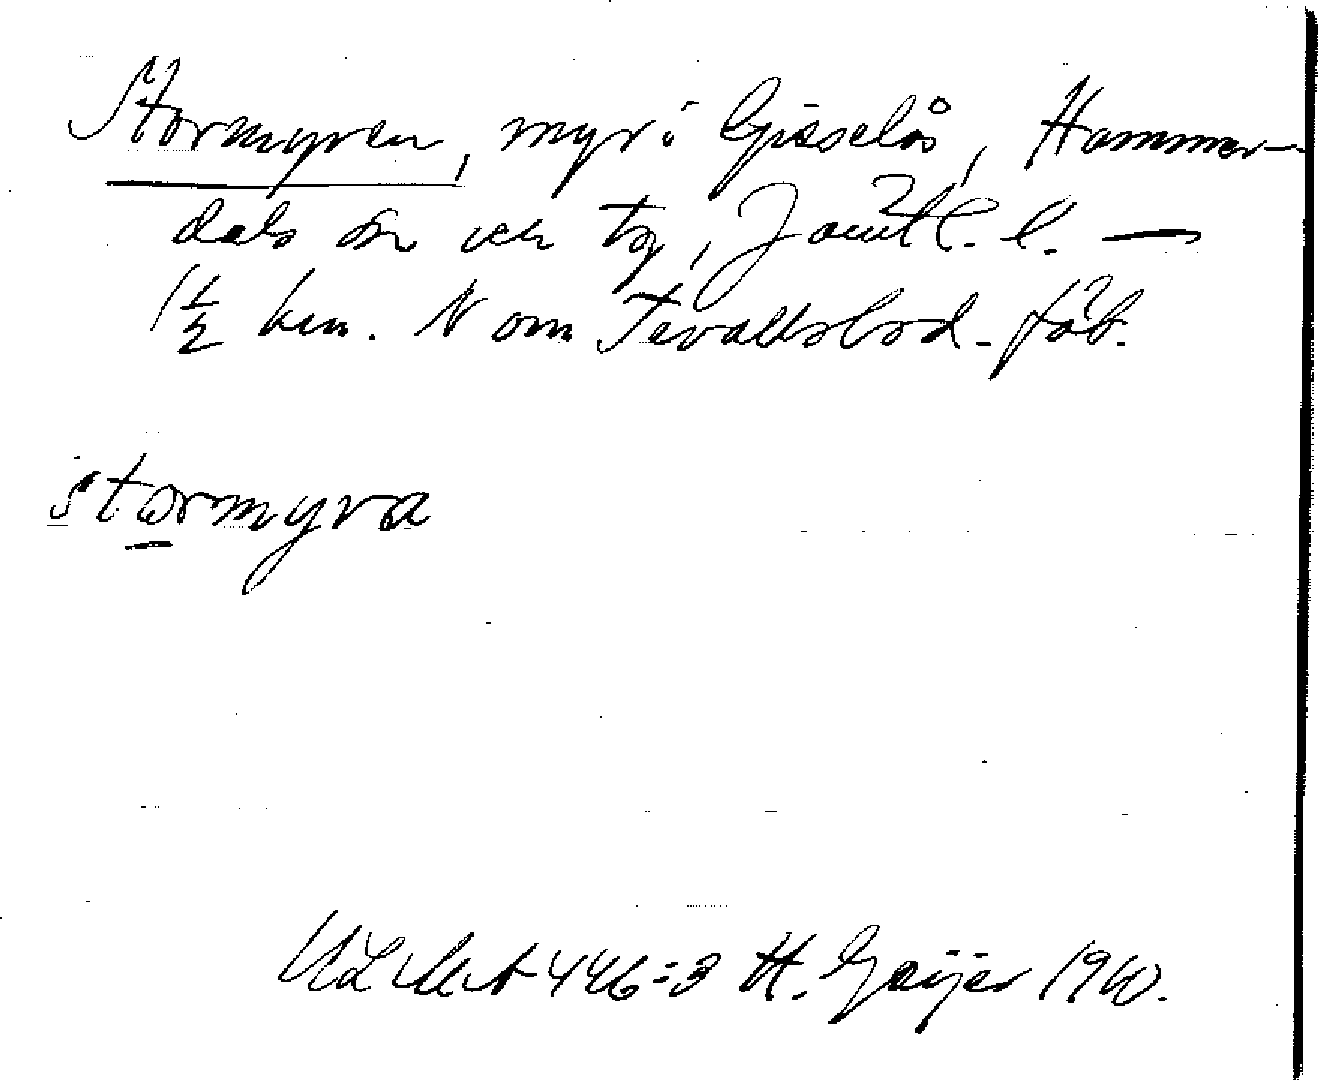 Stormyren, myr i Gisselås, Hammer-
dals sn och tg, Jämtl. l. —
1 1/2 km. N om Tevattsbod. fäb.
stormyra
446:3 H. Geijer 1910.